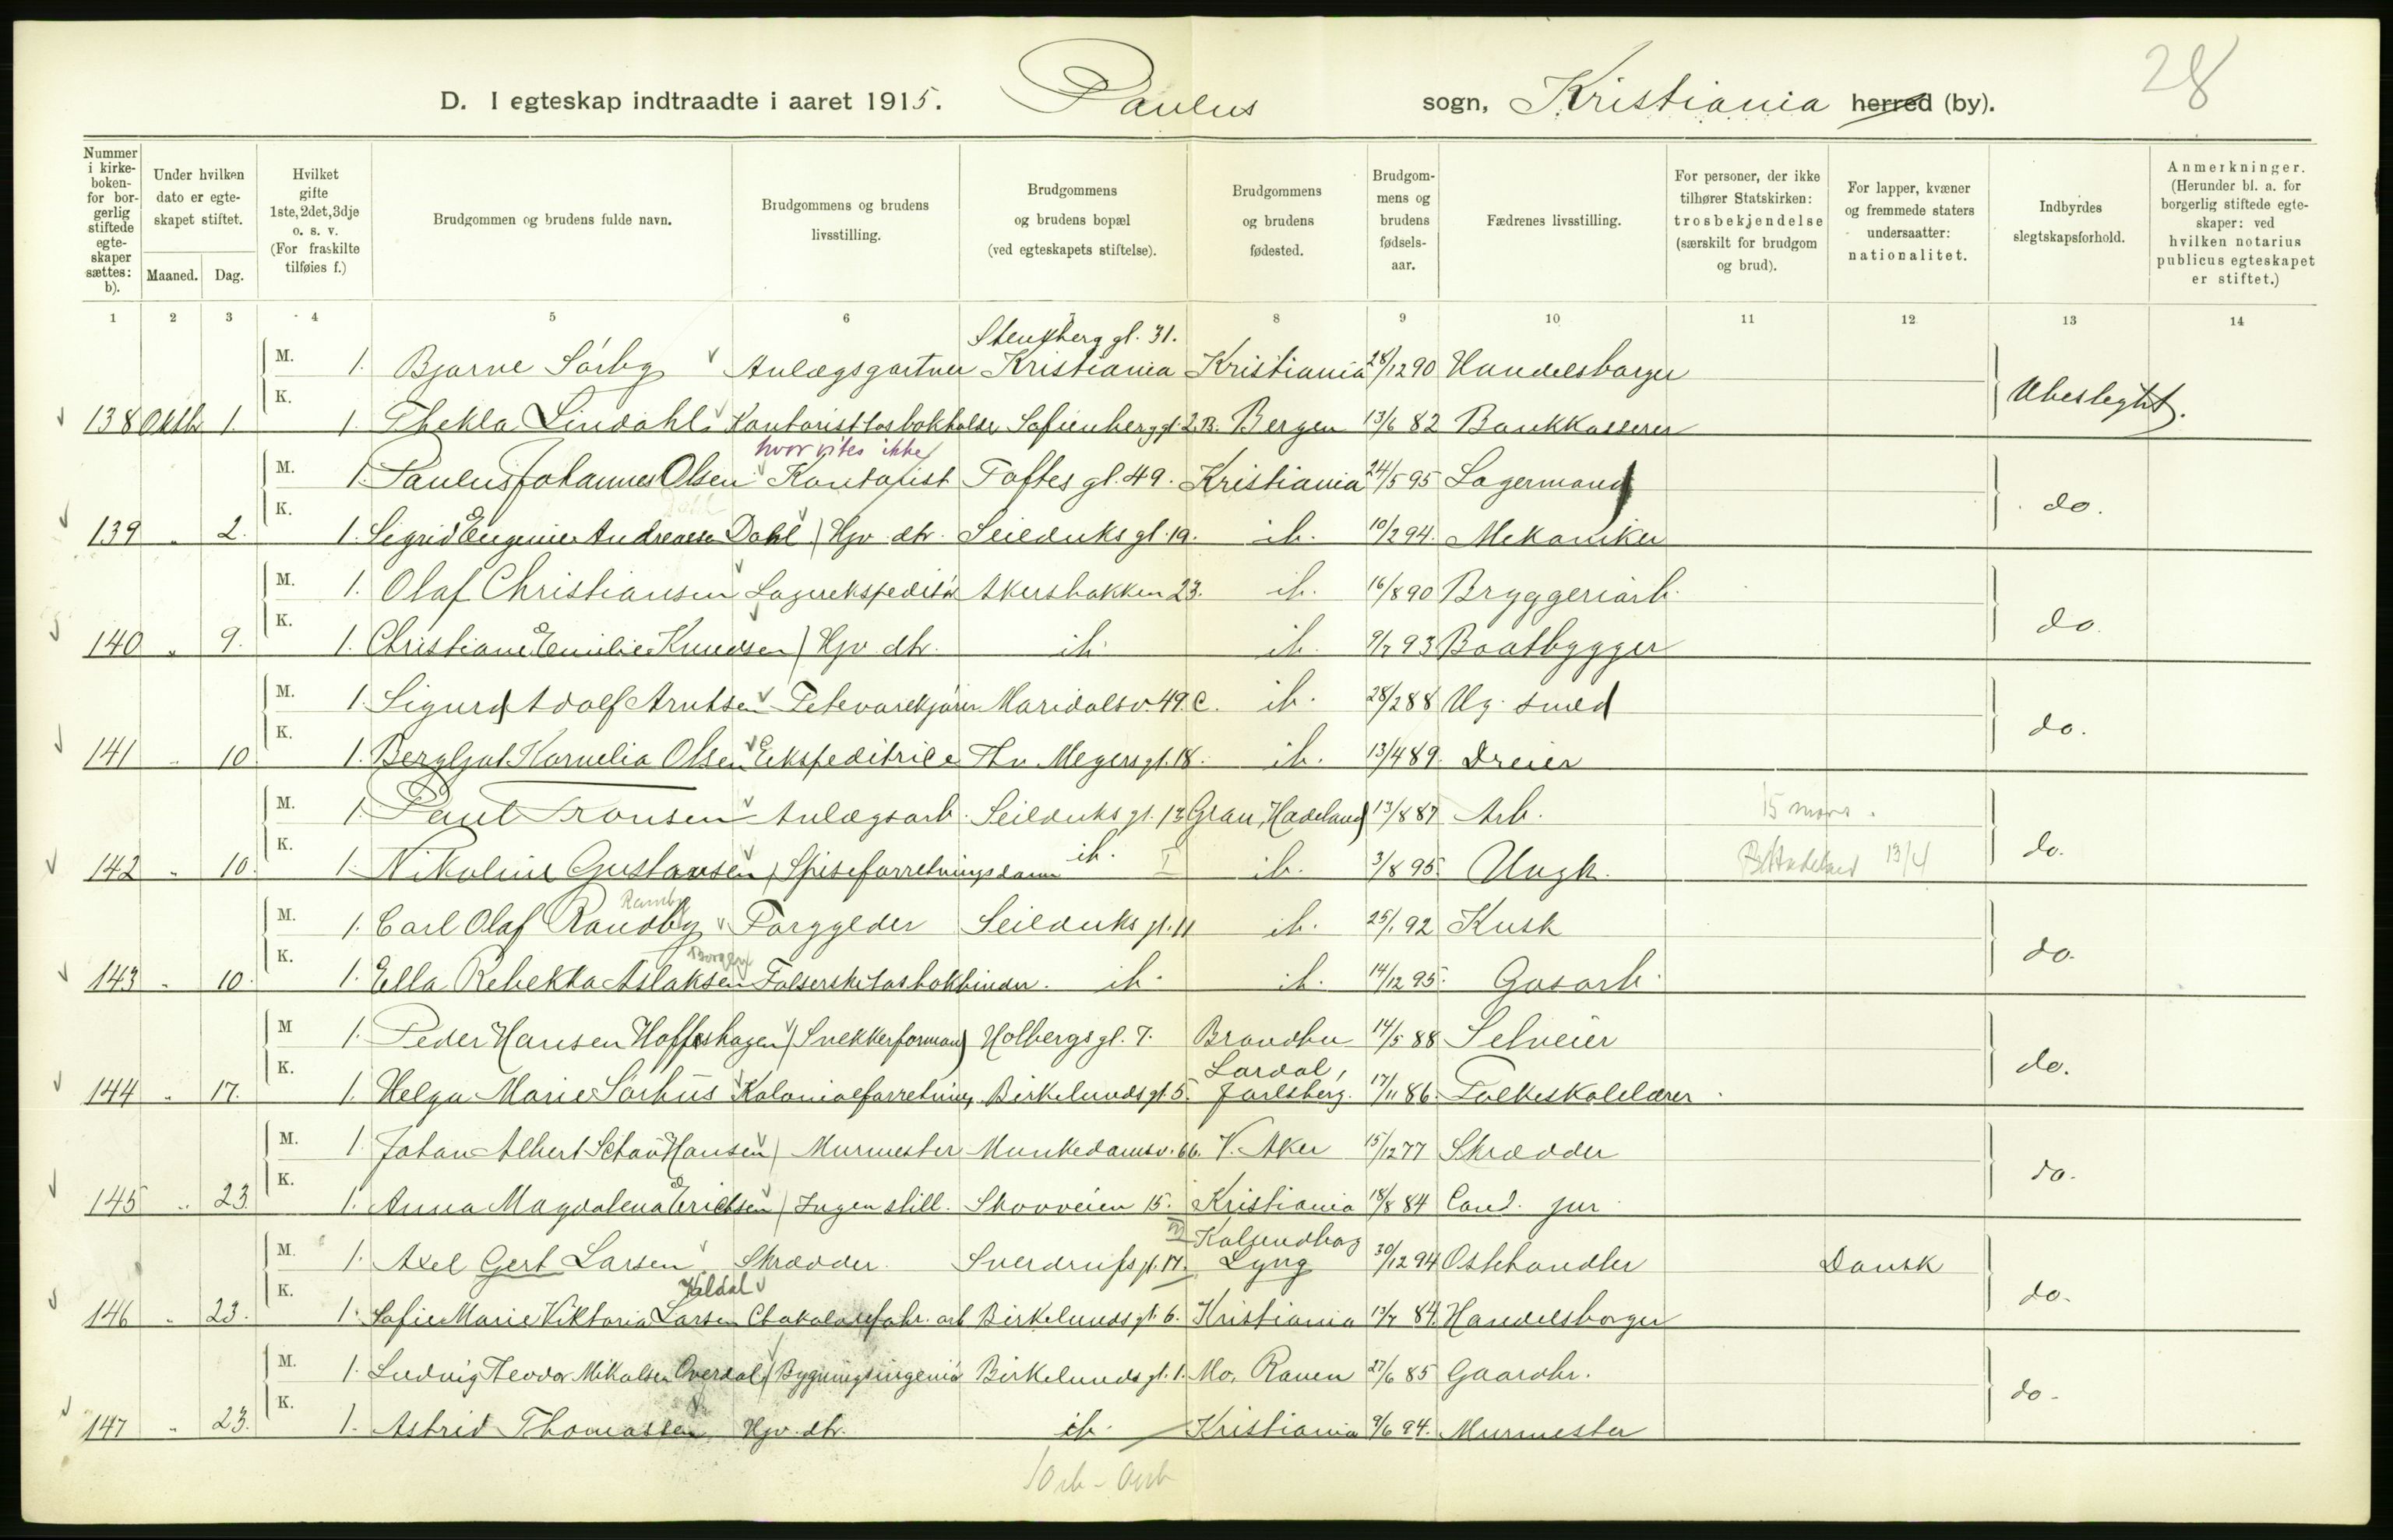 28
D. I egteskap indtraadte i aaret 1915. Paulus sogn, Kristiania herred (by).
Nummer i kirkeboken- for borgerlig stiftede egteskaper sættes: b).
Under hvilken dato er egteskapet stiftet.
Maaned. Dag.
Hvilket gifte 1ste, 2det, 3dje o. s. v. (For fraskilte tilføies f.)
Brudgommen og brudens fulde navn.
Brudgommens og brudens livsstilling.
Brudgommens og brudens bopæl (ved egteskapets stiftelse).
Brudgommens og brudens fødested.
Brudgommens og brudens fødselsaar.
Fædrenes livsstilling.
For personer, der ikke tilhører Statskirken: trosbekjendelse (særskilt for brudgom og brud).
For lapper, kvæner og fremmede staters undersaatter: nationalitet.
Indbyrdes slegtskapsforhold.
Anmerkninger. (Herunder bl. a. for borgerlig stiftede egteskaper: ved hvilken notarius publicus egteskapet er stiftet.)
1 2 3 4 5 6 7 8 9 10 11 12 13 14
Stensberg gt. 31.
M. 1. Bjarne Sörby Anlægsgartner Kristiania Kristiania 28/12 90 Handelsborger
138 Oktbr 1. K. 1. Thekla Lindahl Kontorist hos bokholder Sofienberg gt. 2.B. Bergen 13/6 82 Bankkasserer Ubeslegtet.
hvor vites ikke
M. 1. Paulus Johannes Olsen Kontorist Toftes gt. 49. Kristiania 24/5 95 Lagermand
139 " 2. K. 1. Sigrid Eugenie Andreasen Dahl Hjv. dtr. Seilduks gt. 19. ib. 10/2 94. Mekaniker do.
M. 1. Olaf Christiansen Lagerekspeditör Akersbakken 23. ib. 16/8 90 Bryggeriarb.
140 " 9. K. 1. Christiane Emilie Knudsen Hjv. dtr. ib. ib. 9/7 93 Baatbygger do.
M. 1. Sigurd Adolf Arntsen Fetevarekjører Maridalsv. 49.C. ib. 28/2 88 Ug. smed
141 " 10. K. 1. Bergljot Kornelia Olsen Ekspeditrice Thv. Meyers gt. 18. ib. 13/4 89. Dreier do.
M. 1. Paul Fransen Anlægsarb. Seilduks gt. 13 Gran, Hadeland 13/8 87 Arb. 15 mars.
142 " 10. K. 1. Nikoline Gustavsen Spiseforretningsdame ib. I ib. 3/8 95. Ungk. 13/4 do.
Ramby
M. 1. Carl Olaf Randby Forgylder Seilduks gt. 11 ib. 25/1 92 Kusk
143 " 10. K. 1. Ella Rebekka Aslaksen Falserske hos bokbinder. ib. ib. 14/12 95. Gasarb. do.
M 1. Peder Hansen Hoffshagen Snekkerformand Holbergs gt. 7. Brandbu 14/5 88 Selveier
144 " 17. K. 1. Helga Marie Sörhus Kolonialforretning Birkelunds gt. 5. Lardal, Jarlsberg. 17/11 86. Folkeskolelærer do.
M. 1. Johan Albert Schau Hansen Murmester Munkedamsv. 66. V. Aker 15/12 77 Skrædder
145 " 23. K. 1. Anna Magdalena Erichsen Ingen still. Skovveien 15. Kristiania 18/8 84 Cand. jur. do.
M. 1. Axel Gert Larsen Skrædder Sverdrups gt. 17. Kalundborg Lyng 30/12 94 Ostehandler Dansk
Kaldal
146 " 23. K. 1. Sofie Marie Viktoria Larsen Chokoladefabr. arb Birkelunds gt. 6. Kristiania 13/7 84. Handelsborger do.
M. 1. Ludvig Teodor Mikalsen Overdal Bygningsingeniör Birkelunds gt. 1. Mo, Ranen 27/6 85 Gaardbr.
147 " 23. K. 1. Astrid Thomassen Hjv. dtr. ib. Kristiania 9/6 94. Murmester do.